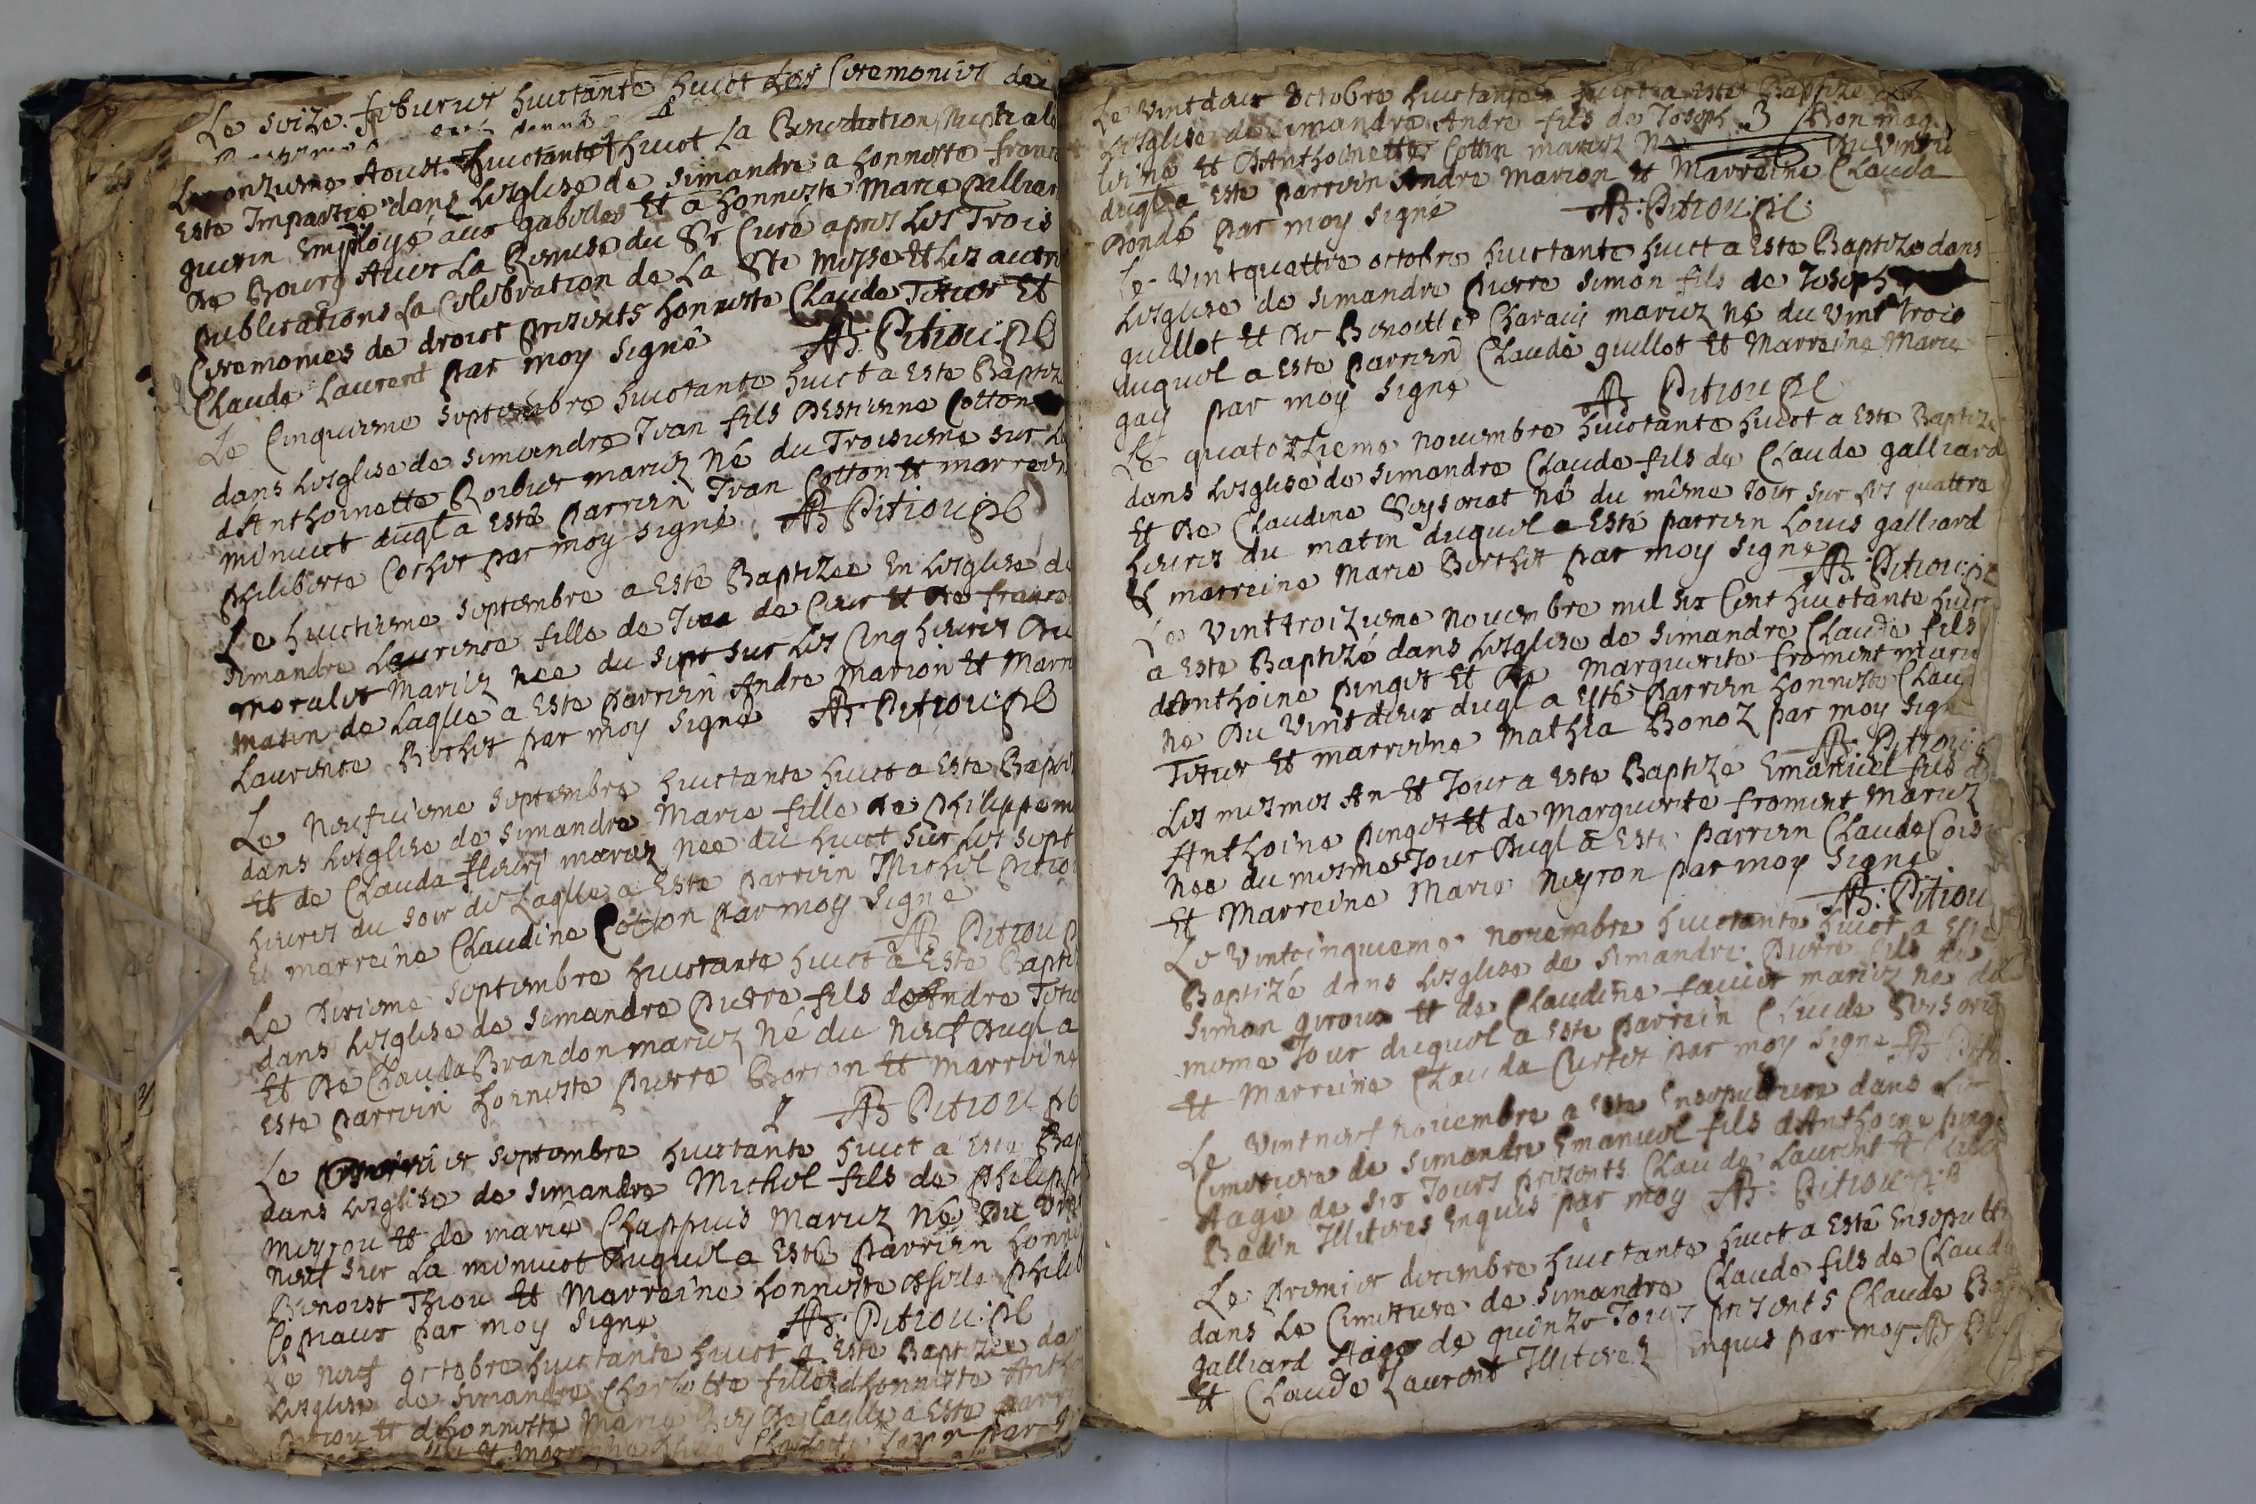 Le seize feburier huictante huict Les Ceremonies de
Le onzieme Aoust huictante huict La Benediction Nuptiale
Este Impartie dans Lesglise de Simandre a honneste
guerin Employé aux gabelles Et a honneste Marie Galliard
de Bourg Avec La Remise du Sr Curé apres Les Trois
publications La Celebration de La Ste Messe Et Les autres
Ceremonies de droict presents honneste Claude Tetier Et
Claude Laurent par moy signé AB: Pitiou: pb
Le Cinquieme septembre huictante huict a Este Baptizé
dans Lesglise de simandre Ivan fils destienne Cotton
dAnthoinette Borbier mariez né du Troisieme sur La
minuict duql a Esté parrein Ivan Cotton Et marreine
philiberte Cochet par moy signé AB Pitiou pb
Le huictieme septembre a Esté Baptizee En Lesglise de
Simandre Laurence fille de Ivan de Cuir Et de
moralet Mariez nee du sept sur Les Cinq heures du
matin de Laqlle a Este parrein Andre Marion Et Marr
Laurence Bochet par moy signé AB: Pitiou: pb
Le Neufuieme septembre huictante huict a Este Bapti
dans Lesglise de simandre Marie fille de philippe
Et de Clauda fleury mariez nee du huict sur Les sept
heures du soir de Laqlle a Este parrein Michel Pitiou
Et marreine Claudine Cotton par moy signé
AB Pitiou p
Le Dixieme septembre huictante huict a Este Bapti
dans Lesglise de simandre Pierre fils de Andre Tetie
Et de Clauda Brandon mariez né du neuf duql a
Este parrein honneste pierre Borron Et marreine
AB Pitiou pb
Le premier septembre huictante huict a Este Bap
dans Lesglise de simandre Michel fils de philippe
Meyzou Et de marie Chappuis Mariez né du
neuf sur La minuict duquel a Esté parrein honne
Benoist Thiou Et Marreine honneste philib
Copiaux par moy signé AB: Pitiou: pb
Le neuf octobre huictante huict a Este Baptizee dan
Lesglise de Simandre Charlotte fille dhonneste Antho
Pitiou Et dhonneste Marie Rey De Laqlle a Este parr
Le Vintdeux octobre huictante huict a Este Baptizé
Lesglise de simandre Andre fils de Joseph Bon
Et dAnthoinette Cottin mariez Né du Vintu
duql a Este parrein Andre Marion Et Marreine Clauda
Dondé par moy signé AB: Pitiou: pb:
Le Vintquattre octobre huictante huict a Este Baptizé dans
Lesglise de simandre pierre simon fils de Joseph
guillot Et de Benoitte Charaij mariez né du Vint trois
duquel a Este parrein Claude guillot Et Marreine Marie
gay par moy signé AB Pitiou pb
Le quatorzieme novembre huictante huict a Este Baptizé
dans Lesglise de simandre Claude fils de Claude galliard
Et de Claudine Seysoriat né du mesme jour sur Les quattre
heures du matin duquel a Esté parrein Louis galliard
Et marreine Marie Berthet par moy signé
AB: Pitiou: pb
Le Vinttroizieme novembre mil six Cent huictante huict
a Este Baptizé dans Lesglise de simandre Claude fils
dAnthoine pinget Et de Marguerite froment marie
ne du Vint deux duql a Esté parrein honneste Clau
Tetier Et marreine Mathia Bonoz par moy signé
AB: Pitiou:
Les mesmes An Et Jour a Este Baptizé Emanuel fils d
Anthoine pinget Et de Marguerite froment Mariez
nee du mesme Jour duql a Esté parrein Claude
Et Marreine Marie Neyron par moy signé
AB: Pitiou
Le Vintcinquieme novembre huictante huict a Este
Baptizé dans Lesglise de simandre Pierre fils de
Simon giroux Et de Claudine favier mariez né du
mesme Jour duquel a Este parrein Claude Seysoria
Et Marreine Clauda Curtet par moy signé AB Piti
Le Vint neuf novembre a Este Ensepulturé dans Le
Cimetiere de simandre Emanuel fils dAnthoine pinge
Aagé de six Jours presents Claude Laurent Et
Badin Illiteres Enquis par moy AB: Pitiou: pb
Le premier decembre huictante huict a Esté Ensepult
dans Le Cimettiere de simandre Claude fils de Claude
galliard Aagé de quinze Jours presents Claude
Et Claude Laurent Illiterez Enquis par moy AB